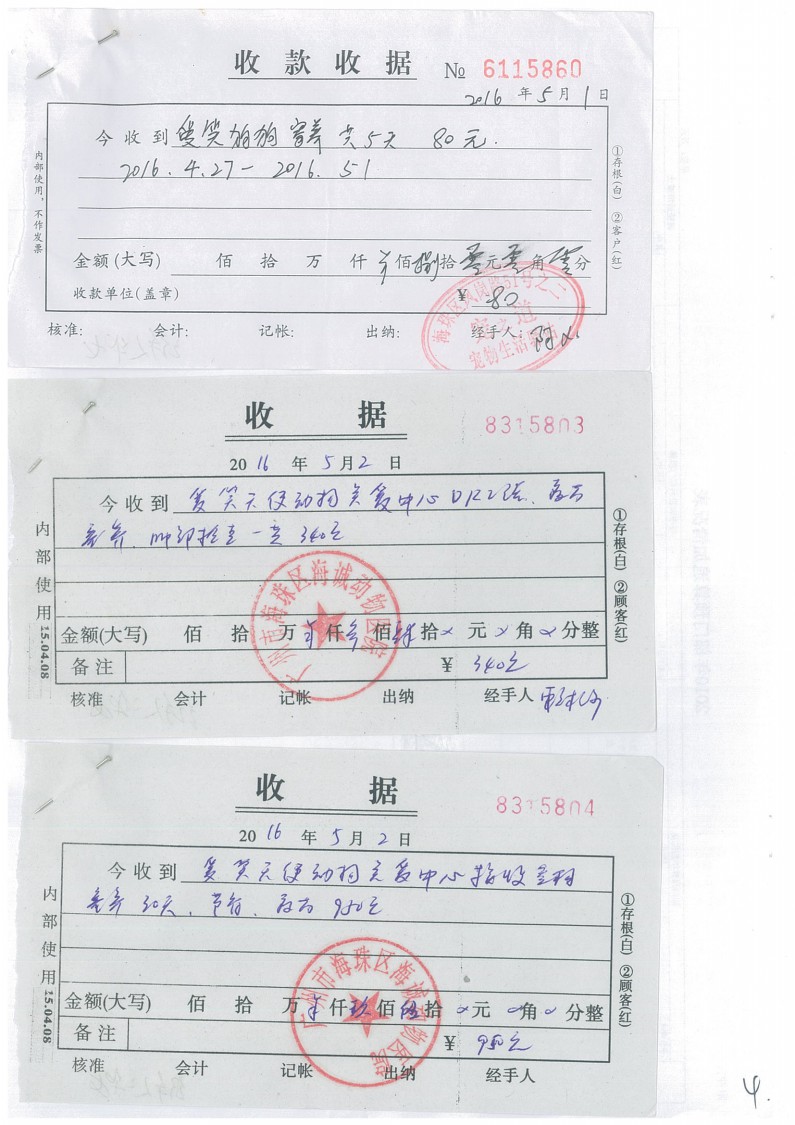 收款收据 № 6115860
2016年5月1日
今收到 爱笑狗狗寄养共5天 80元.
2016.4.27-2016.51
内部使用，不作发票
①存根(白) ②客户(红)
金额(大写) 佰 拾 万 仟 佰捌拾 元 角 分
收款单位(盖章) ¥ 80
核准: 会计: 记帐: 出纳: 经手人:
海珠区 51号之二
宠物生活
收 据 8315803
2016年5月2日
今收到 爱笑天使动物关爱中心 DR2张、
一 340元
内部使用
15.04.08
①存根(白) ②顾客(红)
金额(大写) 佰 拾 万 仟叁佰肆拾 元 角 分整
备注 ¥ 340元
核准 会计 记帐 出纳 经手人
广州市海珠区海诚动物医院
收 据 8315804
2016年5月2日
今收到 爱笑天使动物关爱中心
寄养30天、 950元
内部使用
15.04.08
①存根(白) ②顾客(红)
金额(大写) 佰 拾 万 仟玖佰伍拾 元 角 分整
备注 ¥ 950元
核准 会计 记帐 出纳 经手人
广州市海珠区海诚动物医院
4.